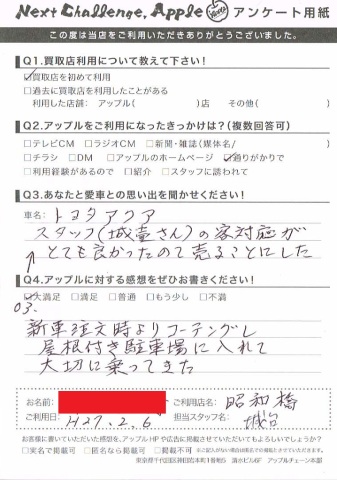 Next Challenge, Apple アンケート用紙
この度は当店をご利用いただきありがとうございました。
Q1.買取店利用について教えて下さい!
☑買取店を初めて利用
□過去に買取店を利用したことがある
利用した店舗: アップル( )店 その他( )
Q2.アップルをご利用になったきっかけは?(複数回答可)
□テレビCM □ラジオCM □新聞・雑誌(媒体名/ )
□チラシ □DM □アップルのホームページ ☑通りがかりで
□利用経験があるので □紹介 □スタッフに誘われて
Q3.あなたと愛車との思い出を聞かせください!
車名: トヨタアクア
スタッフ(城臺さん)の客対応が
とても良かったので売ることにした
Q4.アップルに対する感想をぜひお書きください!
☑大満足 □満足 □普通 □もう少し □不満
Q3.
新車注文時よりコーテングし
屋根付き駐車場に入れて
大切に乗ってきた
お名前:
ご利用店名: 昭和橋
ご利用日: H27.2.6
担当スタッフ名: 城台
お客様に書いていただいた感想を、アップルHPや広告に掲載させていただいてもよろしいでしょうか?
□実名で掲載可 □匿名なら掲載可 □掲載不可
東京都千代田区神田 アップルチェーン本部